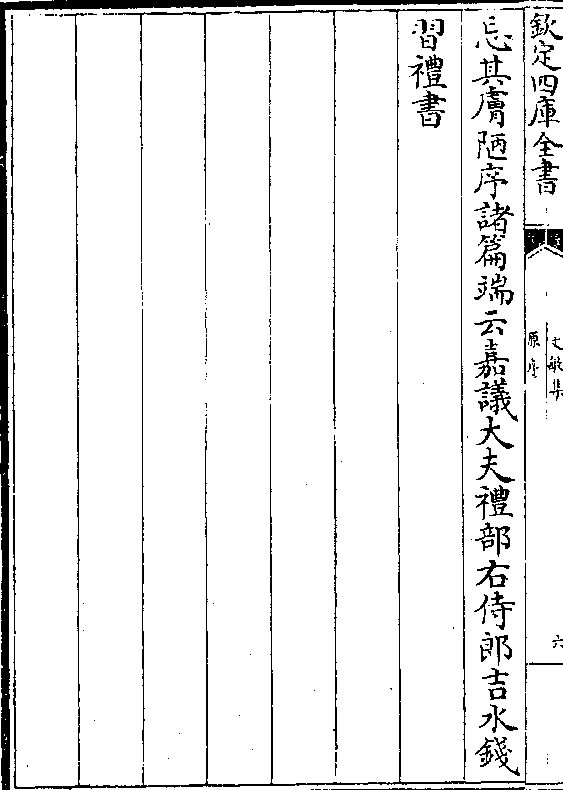 欽定四庫全書
文敏集
原序
六
忘其膚陋序諸篇端云嘉議大夫禮部右侍郎吉水錢
習禮書